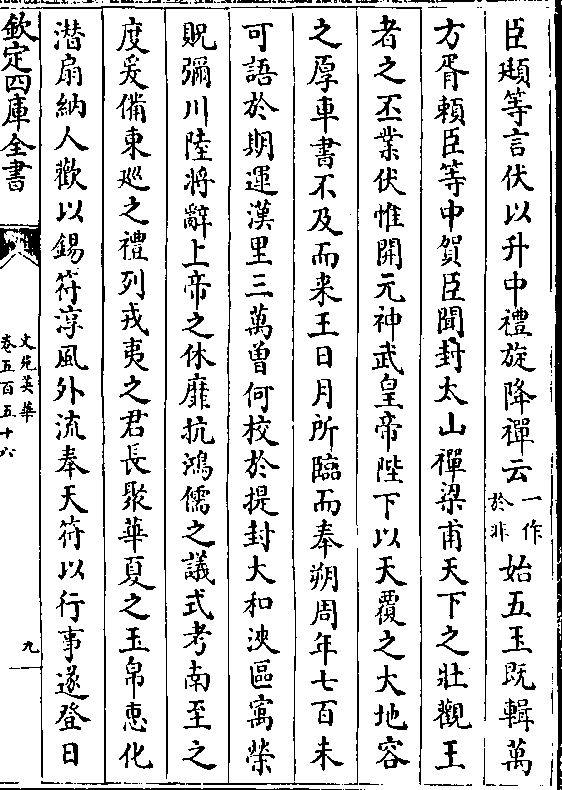 臣頲等言伏以升中禮旋降禪云一作於非始五玉既輯萬
方胥頼臣等中賀臣聞封太山禪梁甫天下之壯觀王
者之丕業伏惟開元神武皇帝陛下以天覆之大地容
之厚車書不及而来王日月所臨而奉朔周年七百未
可語於期運漢里三萬曽何校於提封大和泱區㝢榮
貺彌川陸將辭上帝之休靡抗鴻儒之議式考南至之
度爰備東廵之禮列戎夷之君長聚華夏之玉帛惠化
潛扇納人歡以錫符淳風外流奉天符以行事遂登日
欽定四庫全書
文苑英華
卷五百五十六
九